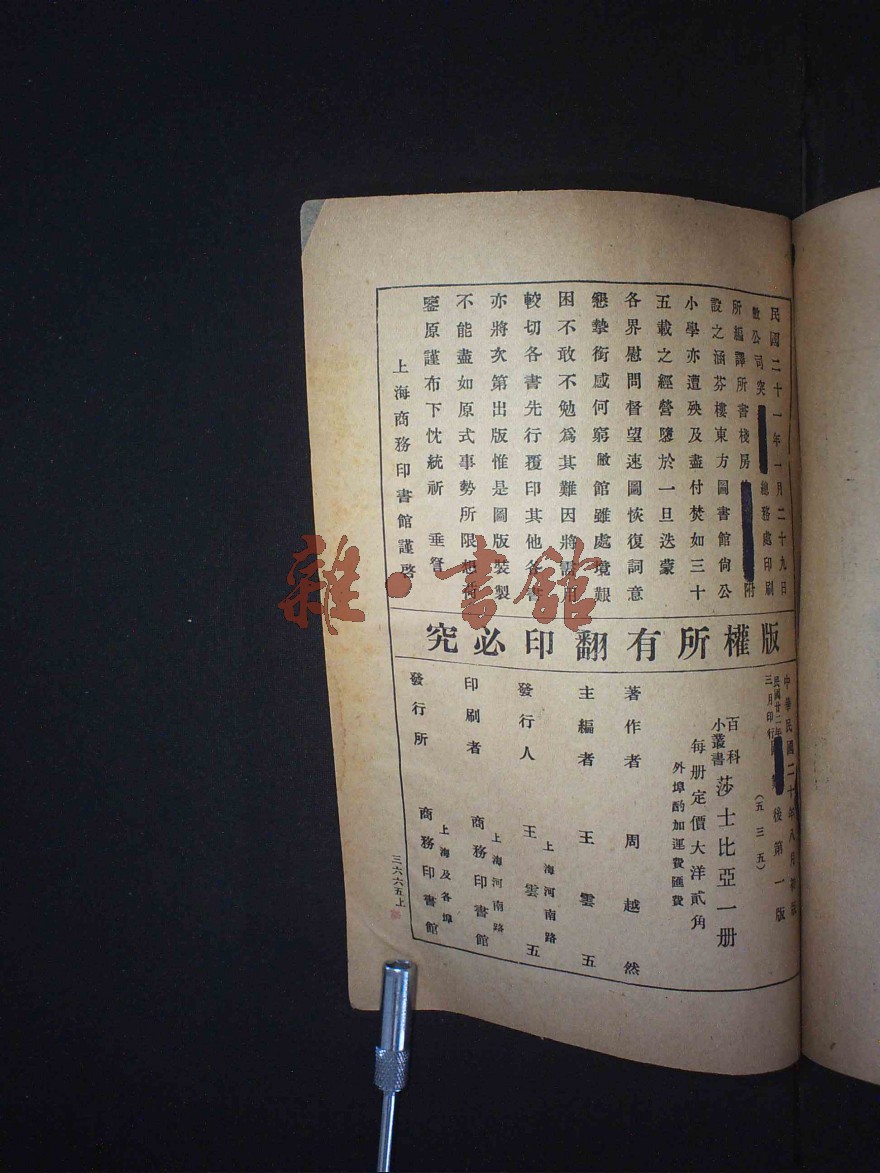 民國二十一年一月二十九日
敝公司突 總務處印刷
所編譯所書棧房 附
設之涵芬樓東方圖書館尙公
小學亦遭殃及盡付焚如三十
五載之經營隳於一旦迭蒙
各界慰問督望速圖恢復詞意
懇摯銜感何窮敝館雖處境艱
困不敢不勉爲其難因將需用
較切各書先行覆印其他各書
亦將次第出版惟是圖版裝製
不能盡如原式事勢所限想荷
鑒原謹布下忱統祈 垂詧
上海商務印書館謹啓
版權所有翻印必究
中華民國二十年八月初版
民國廿二年三月印行 後第一版
(五三五)
百科小叢書 莎士比亞一册
每册定價大洋貳角
外埠酌加運費匯費
著作者 周越然
主編者 王雲五
發行人 上海河南路 王雲五
印刷者 上海河南路 商務印書館
發行所 上海及各埠 商務印書館
三六六五上
雜·書館